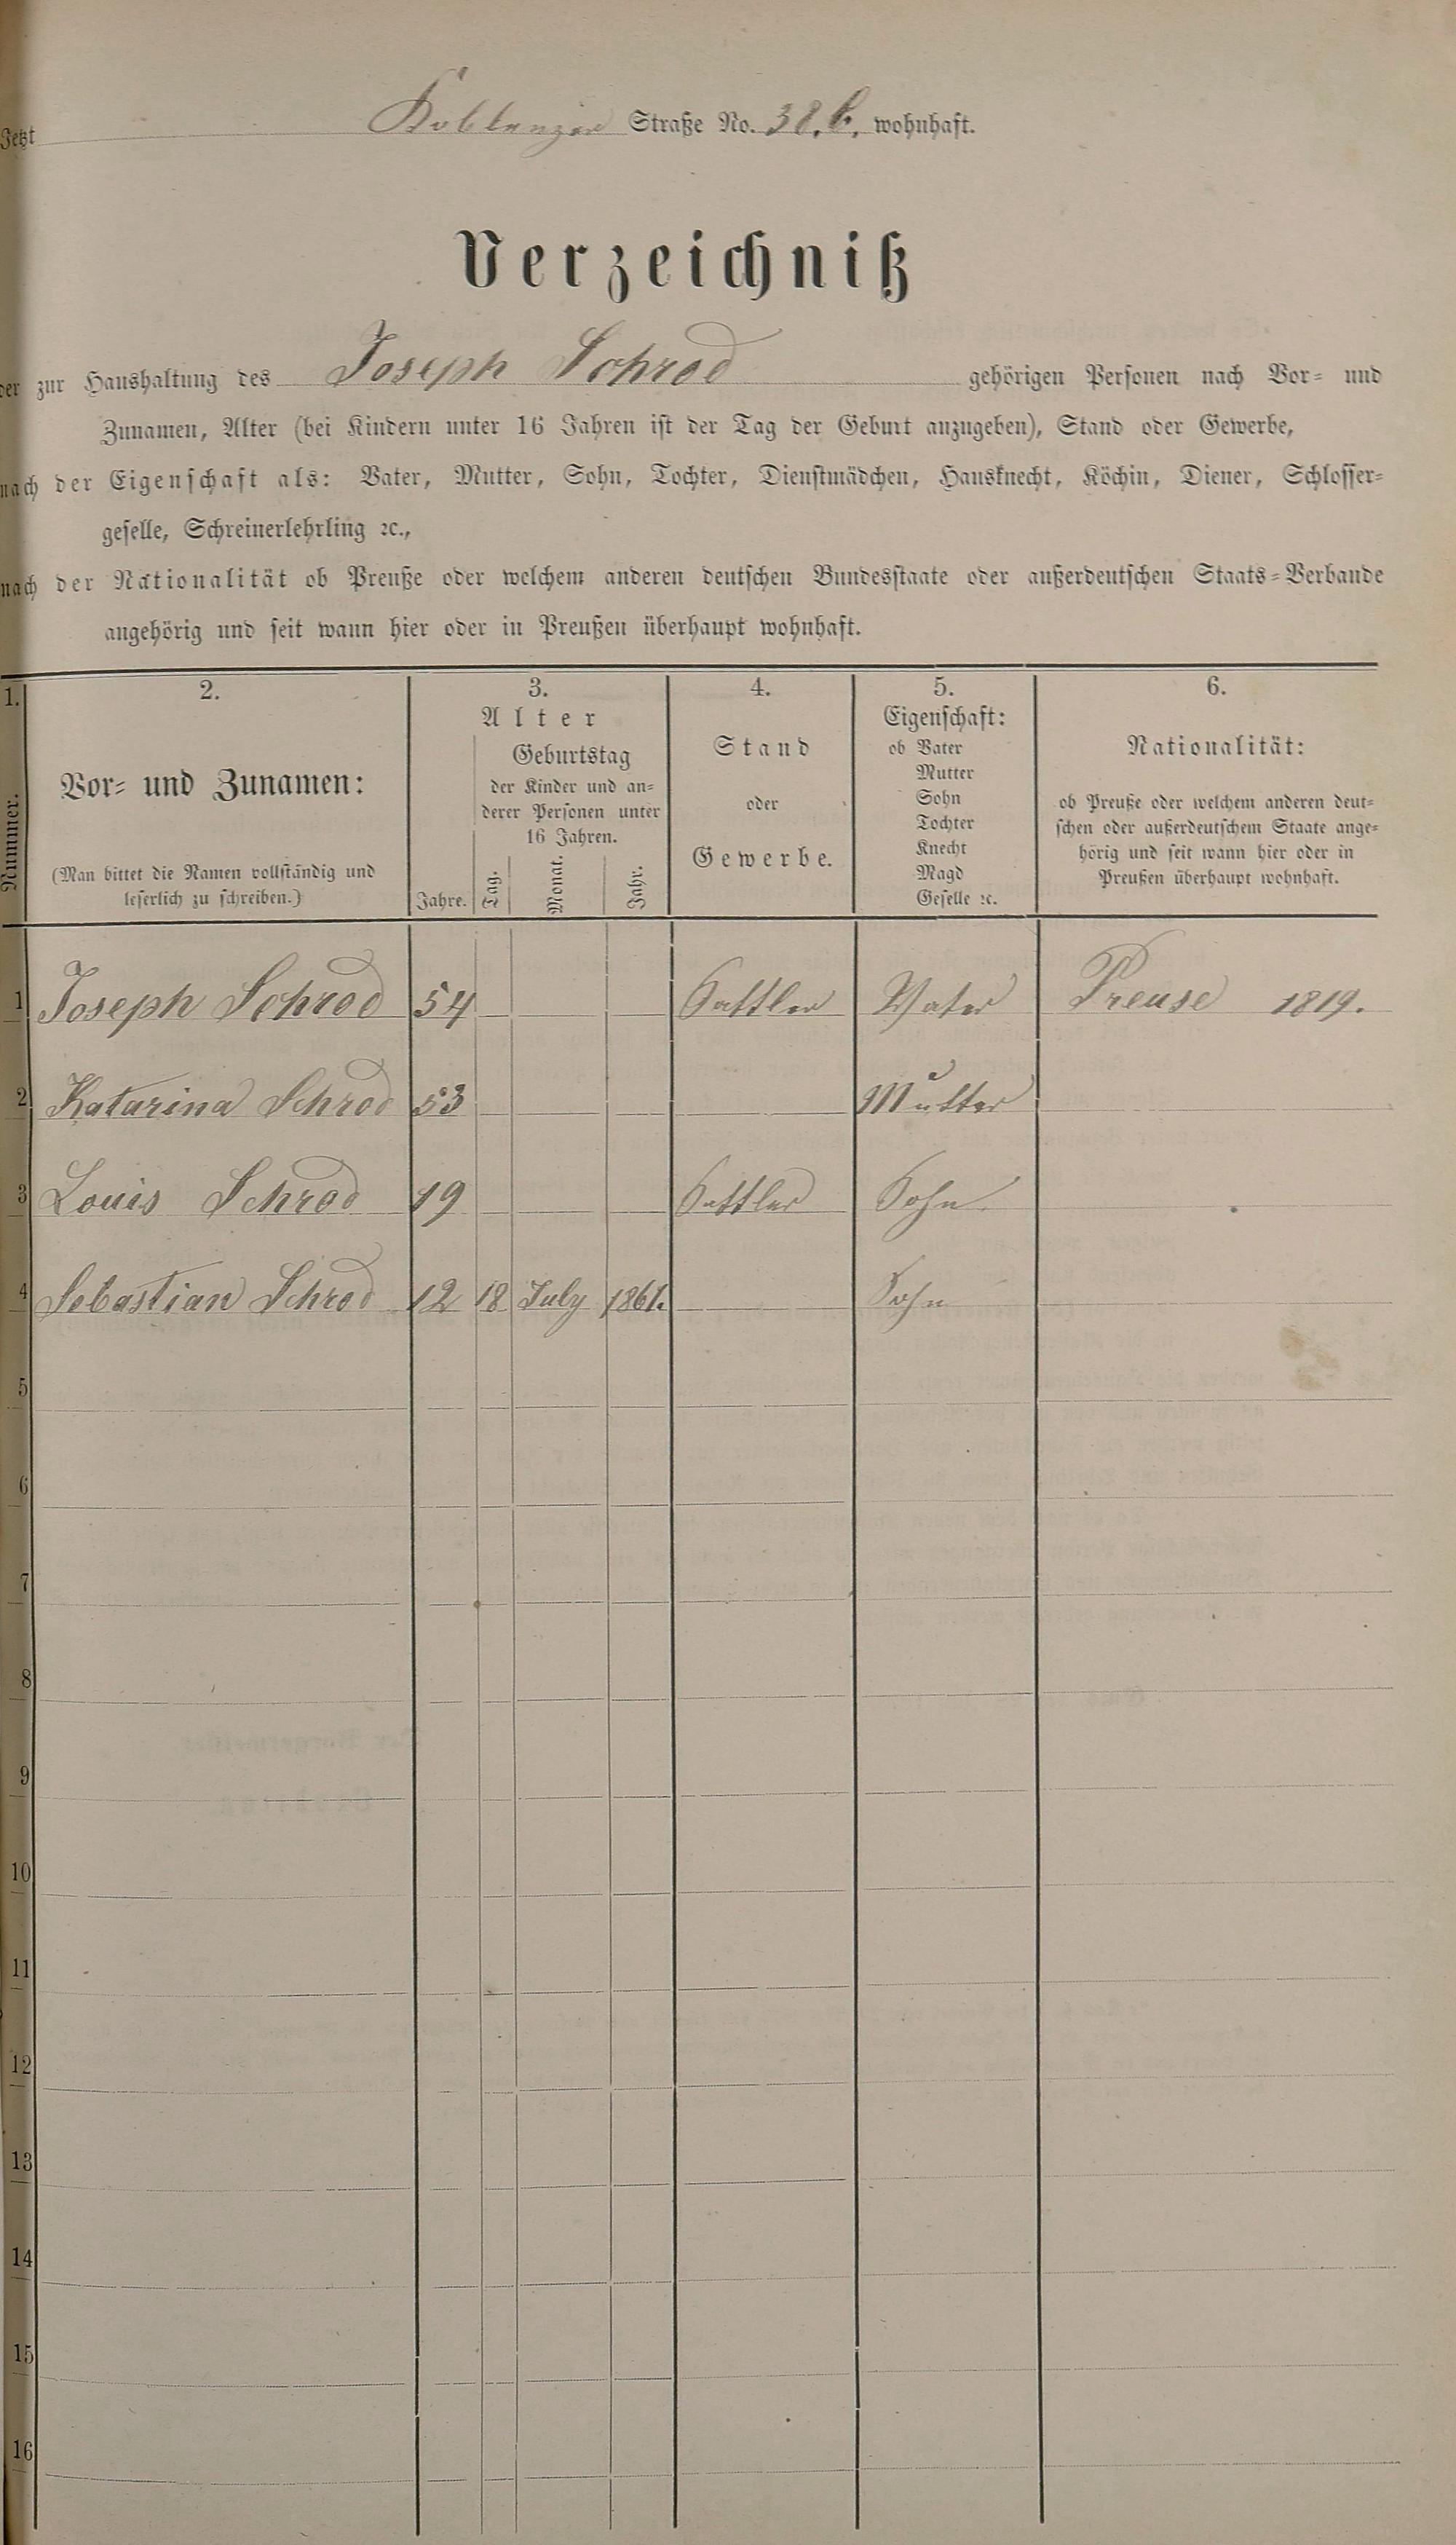 Jetzt Koblenzer Straße No. 38.b. wohnhaft.
Verzeichniß
der zur Haushaltung des Joseph Schrod gehörigen Personen nach Vor- und
Zunamen, Alter (bei Kindern unter 16 Jahren ist der Tag der Geburt anzugeben), Stand oder Gewerbe,
nach der Eigenschaft als: Vater, Mutter, Sohn, Tochter, Dienstmädchen, Hausknecht, Köchin, Diener, Schlosser-
geselle, Schreinerlehrling ꝛc.,
nach der Nationalität ob Preuße oder welchem anderen deutschen Bundesstaate oder außerdeutschen Staats-Verbande
angehörig und seit wann hier oder in Preußen überhaupt wohnhaft.
1. 2. 3. 4. 5. 6.
Nummer.
Vor- und Zunamen:
(Man bittet die Namen vollständig und
leserlich zu schreiben.)
Alter
Geburtstag
der Kinder und an-
derer Personen unter
16 Jahren.
Jahre. Tag. Monat. Jahr.
Stand
oder
Gewerbe.
Eigenschaft:
ob Vater
Mutter
Sohn
Tochter
Knecht
Magd
Geselle ꝛc.
Nationalität:
ob Preuße oder welchem anderen deut-
schen oder außerdeutschem Staate ange-
hörig und seit wann hier oder in
Preußen überhaupt wohnhaft.
1 Joseph Schrod 54 Sattler Vater Preuse 1819.
2 Katarina Schrod 53 Mutter
3 Louis Schrod 19 Sattler Sohn
4 Sebastian Schrod 12 18 July 1861. Sohn
5
6
7
8
9
10
11
12
13
14
15
16